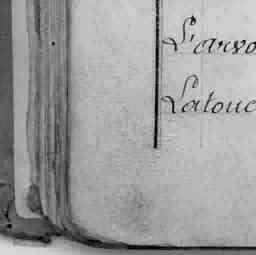 L'arvo
Latouc